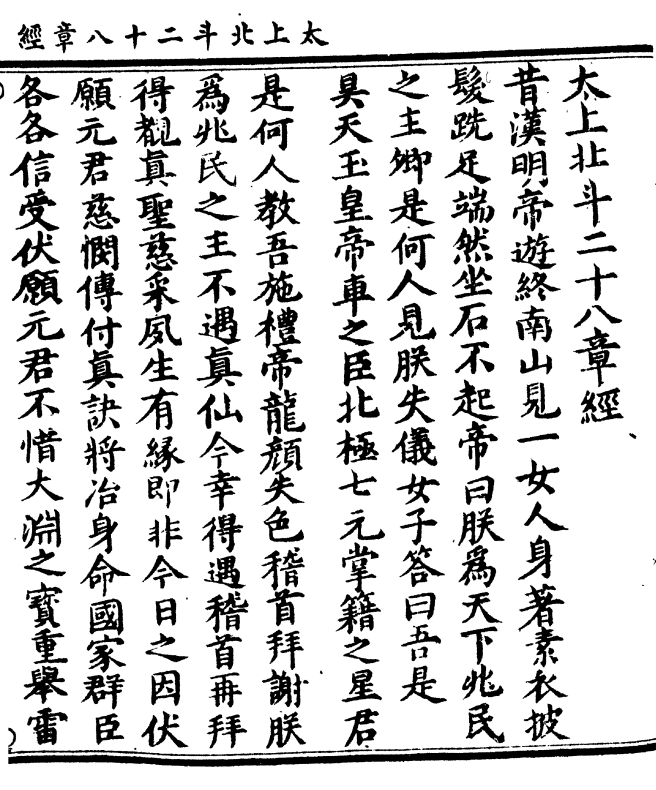 太上北斗二十八章經
太上北斗二十八章經
昔漢明帝遊終南山見一女人身著素衣披
髮跣足端然坐石不起帝曰朕為天下兆民
之主卿是何人見朕失儀女子答曰吾是
昊天玉皇帝車之臣北極七元掌籍之星君
是何人教吾施禮帝龍顏失色稽首拜謝朕
為兆民之主不遇真仙今幸得遇稽首再拜
得觀真聖慈采夙生有緣即非今日之因伏
願元君慈憫傳付真訣將治身命國家群臣
各各信受伏願元君不惜大淵之寶重舉雷